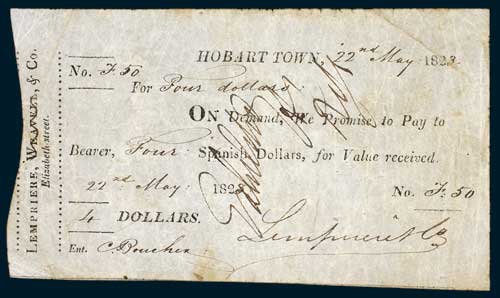 LEMPRIERE, & Co.
Elizabeth street.
HOBART TOWN, 22nd May 1823
No. F. 50
For Four dollars
ON Demand, We Promise to Pay to
Bearer, Four Spanish Dollars, for Value received.
22nd May 1823 No. F. 50
4 DOLLARS.
Ent. Lempriere & Co